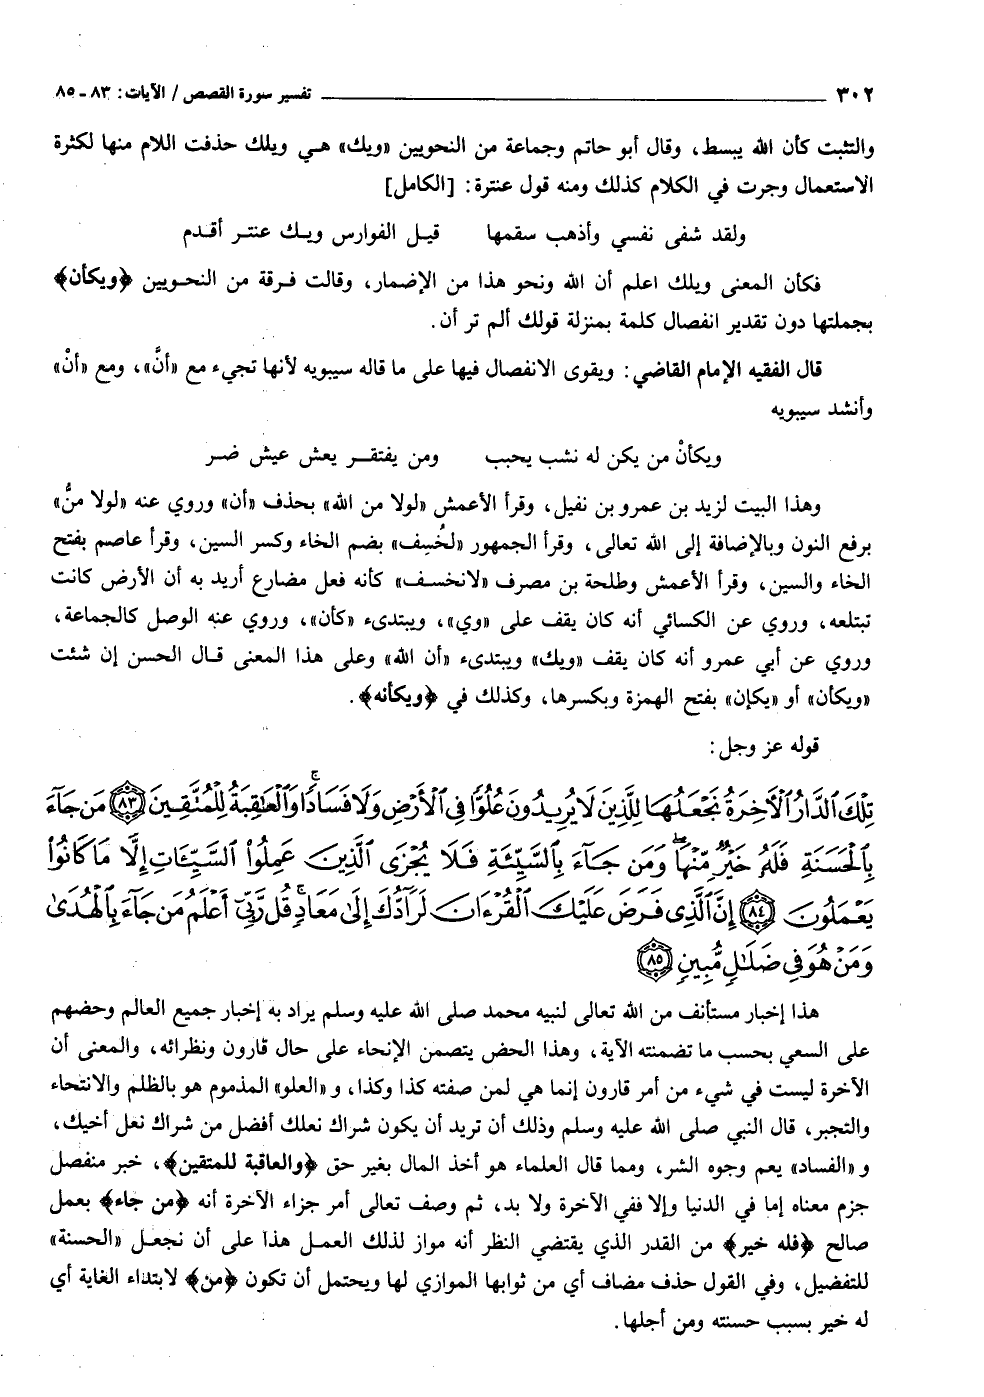 ٣٠٢ تفسير سورة القصص / الآيات: ٨٣ - ٨٥
والتثبت كأن الله يبسط، وقال أبو حاتم وجماعة من النحويين «ويك» هي ويلك حذفت اللام منها لكثرة
الاستعمال وجرت في الكلام كذلك ومنه قول عنترة: [الكامل]
ولقد شفى نفسي وأذهب سقمها قيل الفوارس ويك عنتر أقدم
فكأن المعنى ويلك اعلم أن الله ونحو هذا من الإضمار، وقالت فرقة من النحويين ﴿ويكأن﴾
بجملتها دون تقدير انفصال كلمة بمنزلة قولك ألم تر أن.
قال الفقيه الإمام القاضي: ويقوى الانفصال فيها على ما قاله سيبويه لأنها تجيء مع «أنَّ»، ومع «أنْ»
وأنشد سيبويه
ويكأنْ من يكن له نشب يحبب ومن يفتقر يعش عيش ضر
وهذا البيت لزيد بن عمرو بن نفيل، وقرأ الأعمش «لولا من الله» بحذف «أن» وروي عنه «لولا منُّ»
برفع النون وبالإضافة إلى الله تعالى، وقرأ الجمهور «لخُسِف» بضم الخاء وكسر السين، وقرأ عاصم بفتح
الخاء والسين، وقرأ الأعمش وطلحة بن مصرف «لانخسف» كأنه فعل مضارع أريد به أن الأرض كانت
تبتلعه، وروي عن الكسائي أنه كان يقف على «وي»، ويبتدىء «كأن»، وروي عنه الوصل كالجماعة،
وروي عن أبي عمرو أنه كان يقف «ويك» ويبتدىء «أن الله» وعلى هذا المعنى قال الحسن إن شئت
«ويكأن» أو «يكإن» بفتح الهمزة وبكسرها، وكذلك في ﴿ويكأنه﴾.
قوله عز وجل:
تِلْكَ الدَّارُ الْآخِرَةُ نَجْعَلُهَا لِلَّذِينَ لَا يُرِيدُونَ عُلُوًّا فِي الْأَرْضِ وَلَا فَسَادًا ۚ وَالْعَاقِبَةُ لِلْمُتَّقِينَ ٨٣ مَن جَاءَ
بِالْحَسَنَةِ فَلَهُ خَيْرٌ مِّنْهَا ۖ وَمَن جَاءَ بِالسَّيِّئَةِ فَلَا يُجْزَى الَّذِينَ عَمِلُوا السَّيِّئَاتِ إِلَّا مَا كَانُوا
يَعْمَلُونَ ٨٤ إِنَّ الَّذِي فَرَضَ عَلَيْكَ الْقُرْءَانَ لَرَادُّكَ إِلَى مَعَادٍ ۚ قُل رَّبِّي أَعْلَمُ مَن جَاءَ بِالْهُدَى
وَمَنْ هُوَ فِي ضَلَالٍ مُّبِينٍ ٨٥
هذا إخبار مستأنف من الله تعالى لنبيه محمد صلى الله عليه وسلم يراد به إخبار جميع العالم وحضهم
على السعي بحسب ما تضمنته الآية، وهذا الحض يتضمن الإنحاء على حال قارون ونظرائه، والمعنى أن
الآخرة ليست في شيء من أمر قارون إنما هي لمن صفته كذا وكذا، و «العلو» المذموم هو بالظلم والانتحاء
والتجبر، قال النبي صلى الله عليه وسلم وذلك أن تريد أن يكون شراك نعلك أفضل من شراك نعل أخيك،
و «الفساد» يعم وجوه الشر، ومما قال العلماء هو أخذ المال بغير حق ﴿والعاقبة للمتقين﴾، خبر منفصل
جزم معناه إما في الدنيا وإلا ففي الآخرة ولا بد، ثم وصف تعالى أمر جزاء الآخرة أنه ﴿من جاء﴾ بعمل
صالح ﴿فله خير﴾ من القدر الذي يقتضي النظر أنه مواز لذلك العمل هذا على أن نجعل «الحسنة»
للتفضيل، وفي القول حذف مضاف أي من ثوابها الموازي لها ويحتمل أن تكون ﴿من﴾ لابتداء الغاية أي
له خير بسبب حسنته ومن أجلها.